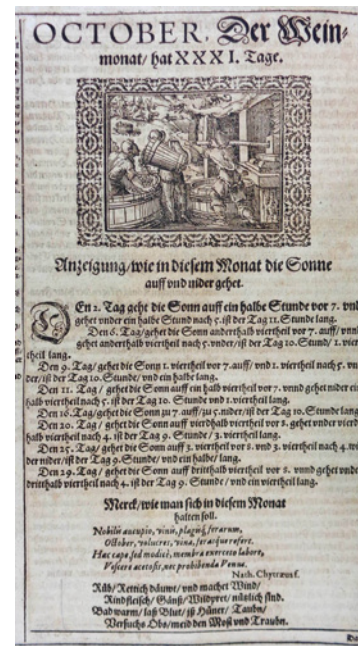 OCTOBER. Der Wein-
monat/ hat XXXI. Tage.
Anzeigung/wie in diesem Monat die Sonne
auff vnd nider gehet.
DEn 2. Tag geht die Sonn auff ein halbe Stunde vor 7. vnd
gehet vnder ein halbe Stund nach 5. ist der Tag 11. Stunde lang.
Den 6. Tag/gehet die Sonn anderthalb viertheil vor 7. auff/ vnnd
gehet anderthalb viertheil nach 5. vnder/ist der Tag 10. Stund/ 1. vier
theil lang.
Den 9. Tag/ gehet die Sonn 1. viertheil vor 7. auff/ vnd 1. viertheil nach 5. vn
der/ist der Tag 10. Stunde/ vnd ein halbe lang.
Den 11. Tag / gehet die Sonn auff ein halb viertheil vor 7. vnnd gehet nider ein
halb viertheil nach 5. ist der Tag 10. Stunde vnd 1. viertheil lang.
Den 16. Tag/gehet die Sonn zu 7. auff/zu 5. nider/ist der Tag 10. Stunde lang.
Den 20. Tag / gehet die Sonn auff vierdhalb viertheil vor 8. gehet vnder vierd
halb viertheil nach 4. ist der Tag 9. Stunde / 3. viertheil lang.
Den 25. Tag/ gehet die Sonn auff 3. viertheil vor 8. vnd 3. viertheil nach 4. wi
der nider/ist der Tag 9. Stunde/ vnd ein halbe/ lang.
Den 29. Tag / gehet die Sonn auff dritthalb viertheil vor 8. vnnd gehet vnder
dritthalb viertheil nach 4. ist der Tag 9. Stunde / vnd ein viertheil lang.
Merck/wie man sich in diesem Monat
halten soll.
Nobilis aucupio, vinis, plagisq; ferarum,
October, volucres, vina, ferasque refert.
Hac cape, sed modicè, membra exerceto labore,
Vescere acetosis, nec prohibenda Venus.
Nath. Chytraeus.
Rüb/ Rettich däuwt/ vnd machet Wind/
Rindfleisch/ Gänß/ Wildpret/ nützlich sind.
Bad warm/ laß Blut/ iß Hüner/ Taubn/
Versuchs Obs/ meid den Most vnd Traubn.